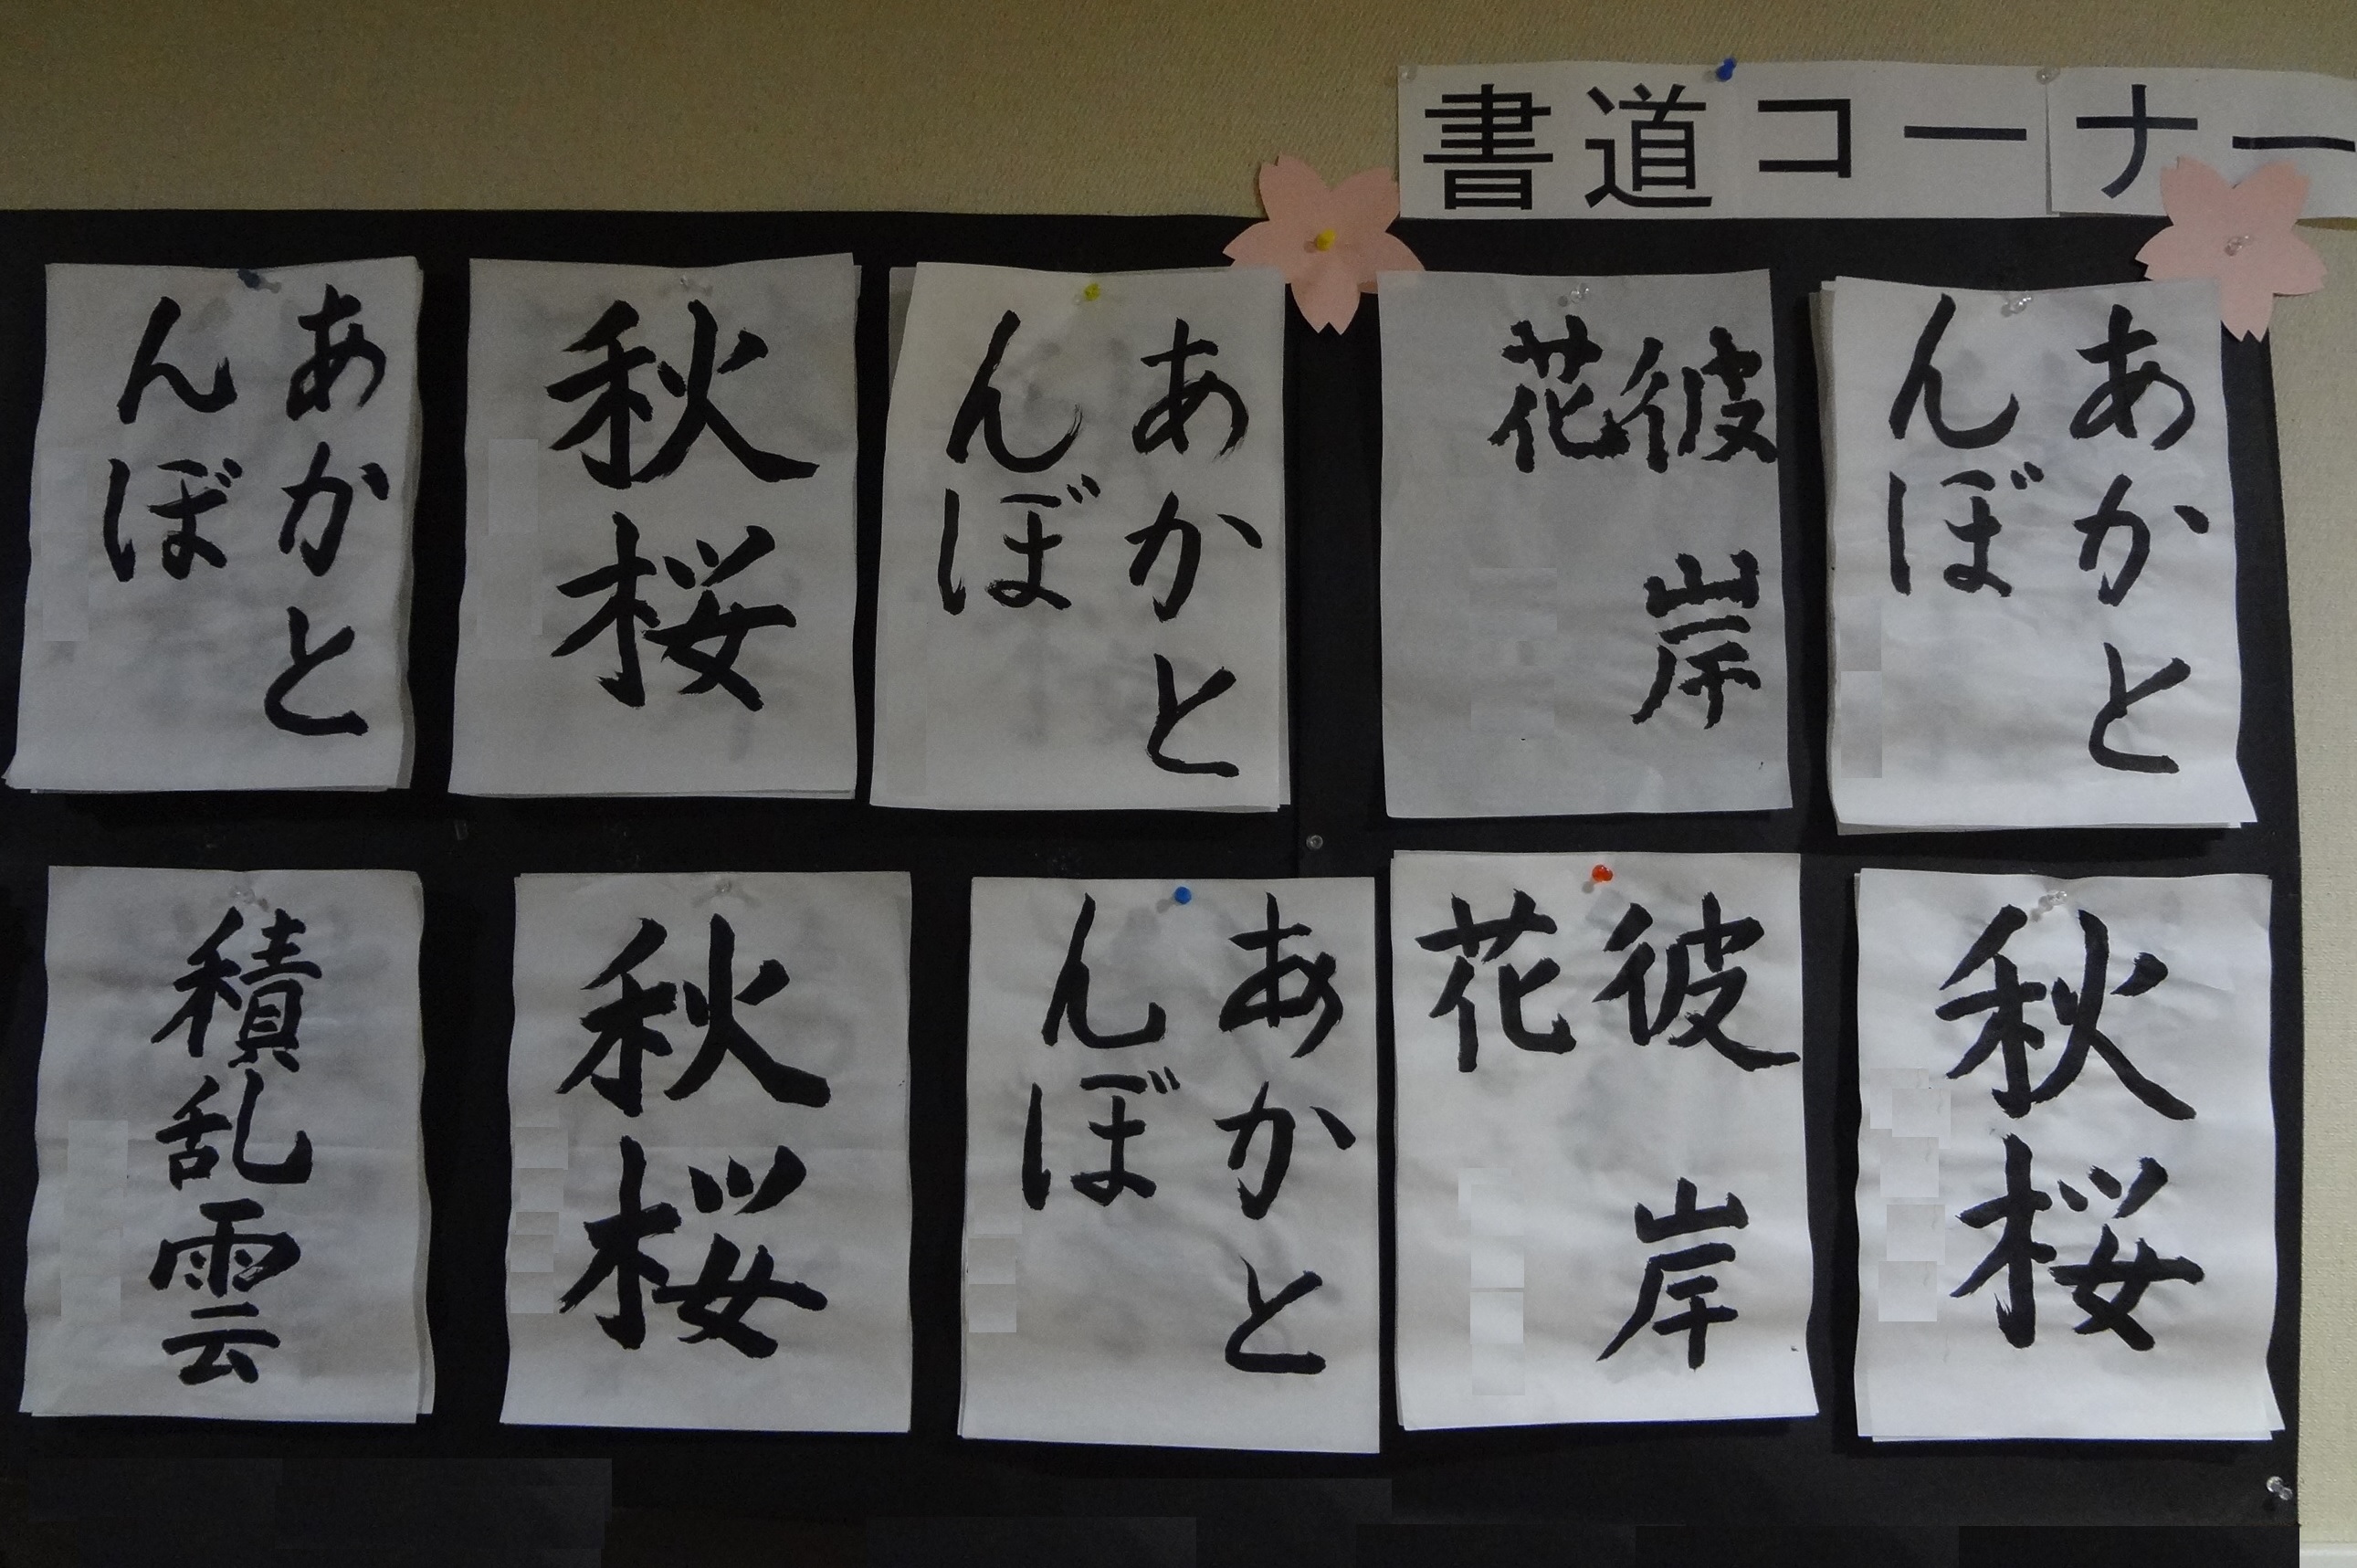 書道コーナー
あかと
んぼ
秋桜
あかと
んぼ
彼岸
花
あかと
んぼ
積乱雲
秋桜
あかと
んぼ
彼岸
花
秋桜